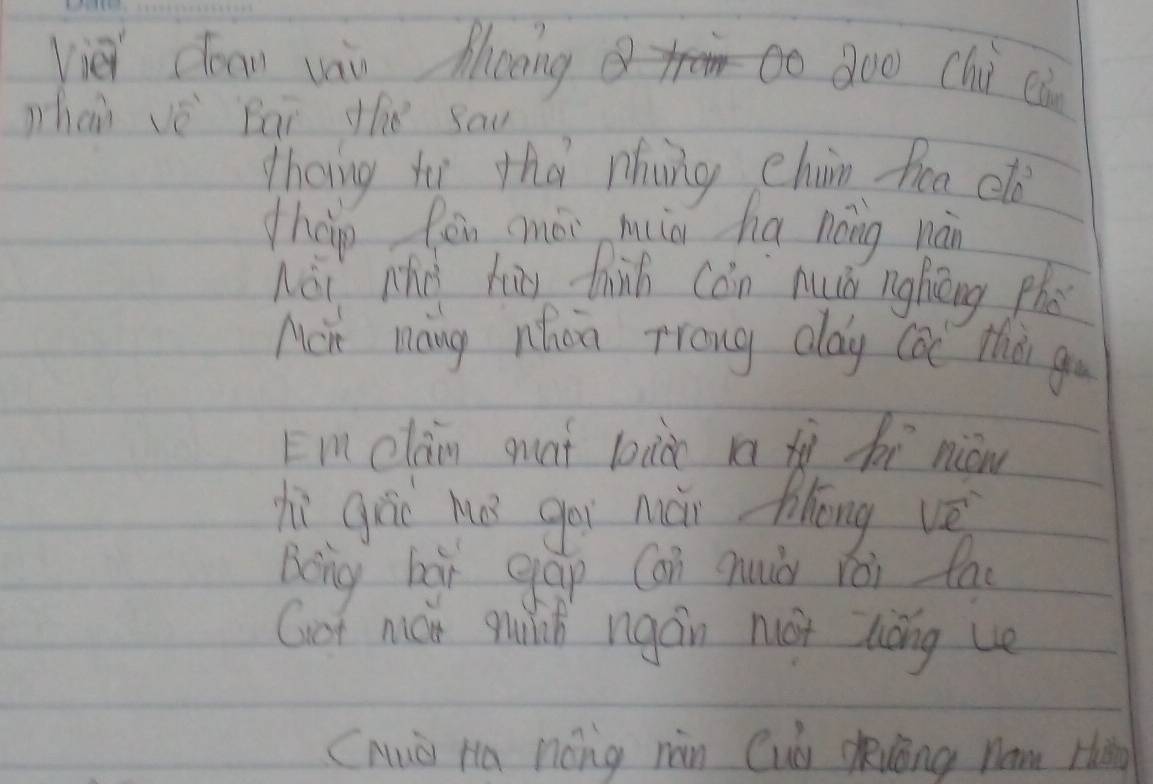 Viết đoạn văn khoảng 2 00 200 chữ cảm
nhận về bài thơ sau
Tháng tư thả những chùm hoa đỏ
Thắp lên môi mùa hạ nồng nàn
Nỗi nhớ tùy hình cơn mưa nghiêng phố
Mặt nắng nhòa trong đáy cốc thời gian
Em đằm mát bước ra từ kỉ niệm
từ giấc mơ gọi mãi không về
Bỗng bắt gặp cơn mưa rơi lạc
Giọt mát mình ngân một tiếng ve
(Mùa Hạ nồng nàn của trương Nam